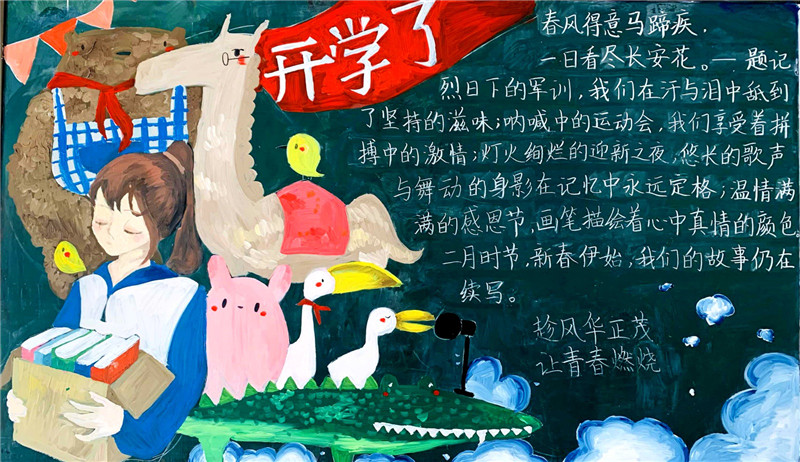 开学了
春风得意马蹄疾，
一日看尽长安花。—题记
烈日下的军训，我们在汗与泪中舔到
了坚持的滋味；呐喊中的运动会，我们享受着拼
搏中的激情；灯火绚烂的迎新之夜，悠长的歌声
与舞动的身影在记忆中永远定格；温情满
满的感恩节，画笔描绘着心中真情的颜色。
二月时节，新春伊始，我们的故事仍在
续写。
趁风华正茂
让青春燃烧